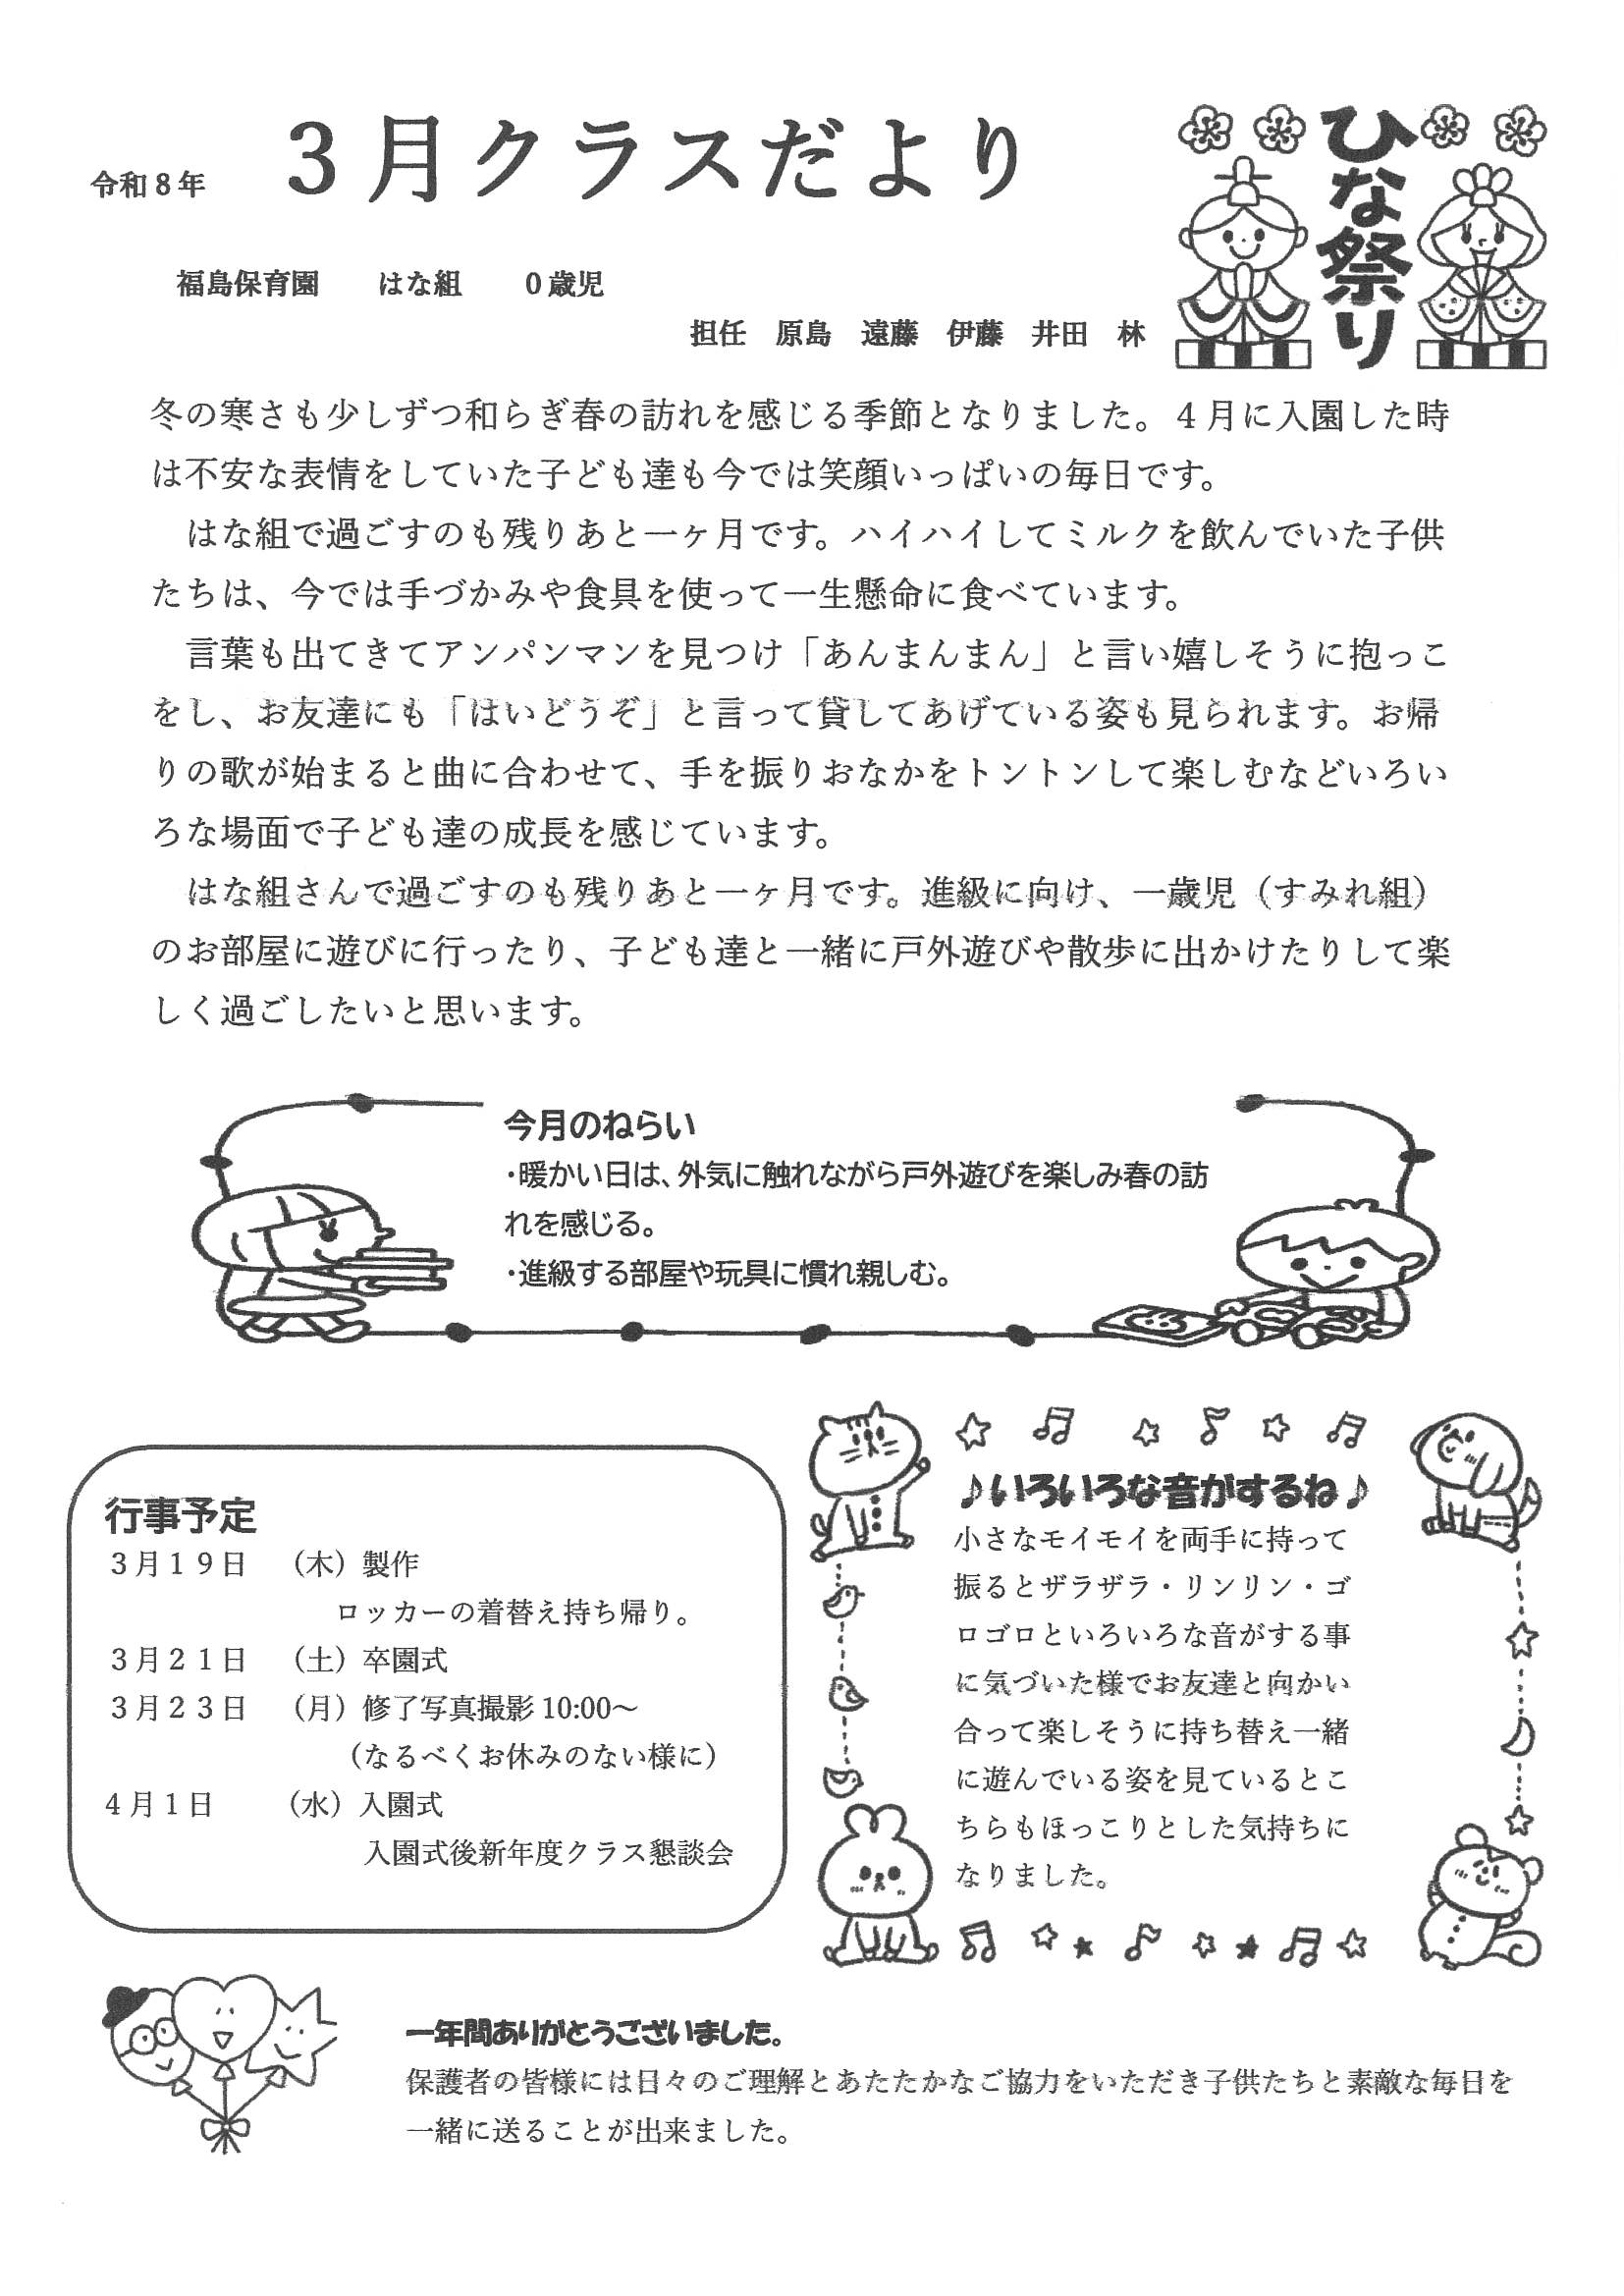 令和８年
３月クラスだより
ひな祭り
福島保育園　はな組　０歳児
担任　原島　遠藤　伊藤　井田　林
冬の寒さも少しずつ和らぎ春の訪れを感じる季節となりました。４月に入園した時
は不安な表情をしていた子ども達も今では笑顔いっぱいの毎日です。
はな組で過ごすのも残りあと一ヶ月です。ハイハイしてミルクを飲んでいた子供
たちは、今では手づかみや食具を使って一生懸命に食べています。
言葉も出てきてアンパンマンを見つけ「あんまんまん」と言い嬉しそうに抱っこ
をし、お友達にも「はいどうぞ」と言って貸してあげている姿も見られます。お帰
りの歌が始まると曲に合わせて、手を振りおなかをトントンして楽しむなどいろい
ろな場面で子ども達の成長を感じています。
はな組さんで過ごすのも残りあと一ヶ月です。進級に向け、一歳児（すみれ組）
のお部屋に遊びに行ったり、子ども達と一緒に戸外遊びや散歩に出かけたりして楽
しく過ごしたいと思います。
今月のねらい
・暖かい日は、外気に触れながら戸外遊びを楽しみ春の訪
れを感じる。
・進級する部屋や玩具に慣れ親しむ。
行事予定
３月１９日　（木）製作
ロッカーの着替え持ち帰り。
３月２１日　（土）卒園式
３月２３日　（月）修了写真撮影 10:00～
（なるべくお休みのない様に）
４月１日　（水）入園式
入園式後新年度クラス懇談会
♪いろいろな音がするね♪
小さなモイモイを両手に持って
振るとザラザラ・リンリン・ゴ
ロゴロといろいろな音がする事
に気づいた様でお友達と向かい
合って楽しそうに持ち替え一緒
に遊んでいる姿を見ているとこ
ちらもほっこりとした気持ちに
なりました。
一年間ありがとうございました。
保護者の皆様には日々のご理解とあたたかなご協力をいただき子供たちと素敵な毎日を
一緒に送ることが出来ました。